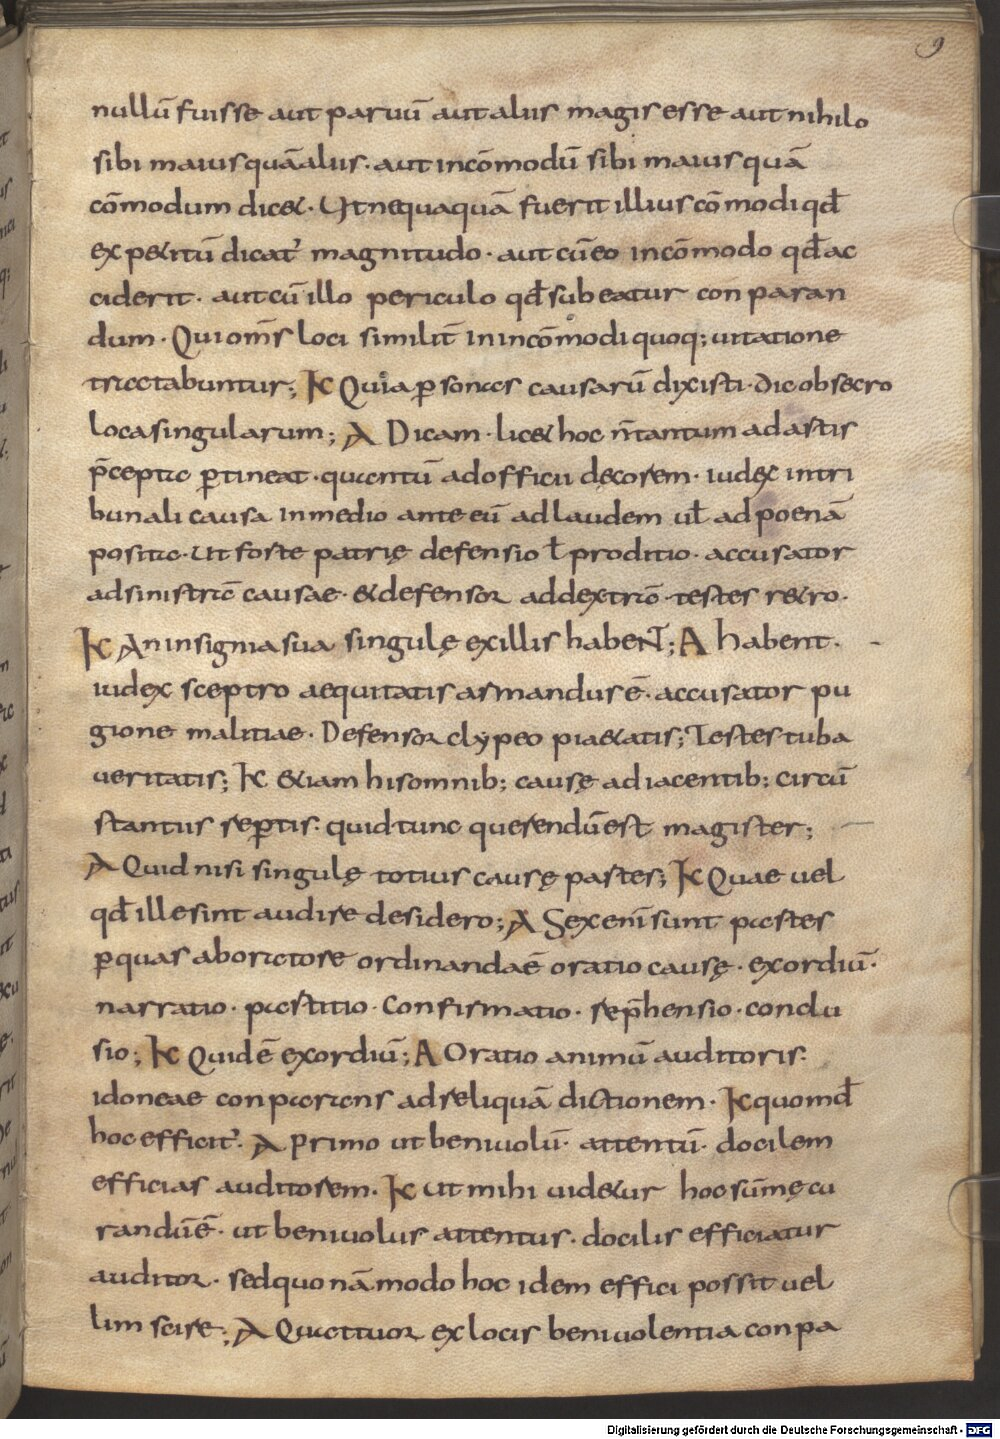 9
nullū fuisse aut paruū aut aliis magis esse aut nihilo
sibi maius quā aliis · aut incōmodū sibi maius quā
cōmodum dic& · Ut nequaquā fuerit illius cōmodi qđ
exp&itū dicat᷒ magnitudo · aut cū eo incōmodo qđ ac
ciderit · aut cū illo periculo qđ subeatur conparan
dum · Qui om̄s loci similit̄ in incōmodi quoq; uitatione
tractabuntur; K Quia ꝑsonas causarū dixisti · dic obsecro
loca singularum; A Dicam · lic& hoc n̄ tantum ad artis
p̄cepta ꝑtineat · quantū ad officii decorem · iudex in tri
bunali causa in medio ante eū ad laudem uł ad poenā
posita · Ut forte patrię defensio ł proditio · accusator
ad sinistrā causae · & defensor ad dextrā · testes r&ro ·
K An insignia sua singulę ex illis habeNT; A habent ·
iudex sceptro aequitatis armandus ē · accusator pu
gione malitiae · Defensor clypeo pi&atis; Testes tuba
ueritatis; K &iam his omnib; causę adiacentib; circū
stantiis reꝑtis · quid tunc querendū est magister;
A Quid nisi singulę totius causę partes; K Quae uel
qđ ille sint audire desidero; A Sex enī sunt partes
ꝑ quas ab oratore ordinanda ē oratio causę · exordiū ·
narratio · partitio · Confirmatio · rep̄hensio · conclu
sio; K Quid ē exordiū; A Oratio animū auditoris ·
idoneae conparans ad reliquā dictionem · K quomđ
hoc efficit᷒ · A primo ut beniuolū · attentū · docilem
efficias auditorem · K ut mihi uid&ur hoc sūmę cu
randū ē · ut beniuolus attentus · docilis efficiatur
auditor · sed quo nā modo hoc idem effici possit uel
lim scire; A Quattuor ex locis beniuolentia conpa
Digitalisierung gefördert durch die Deutsche Forschungsgemeinschaft - DFG